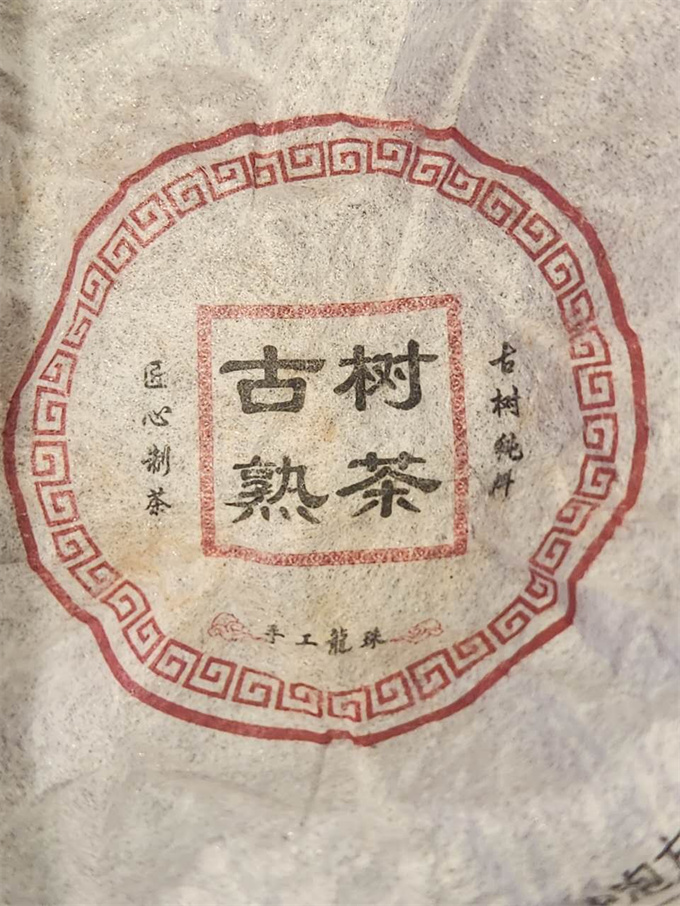 古树
熟茶
匠心制茶
古树纯料
手工龍珠
泡